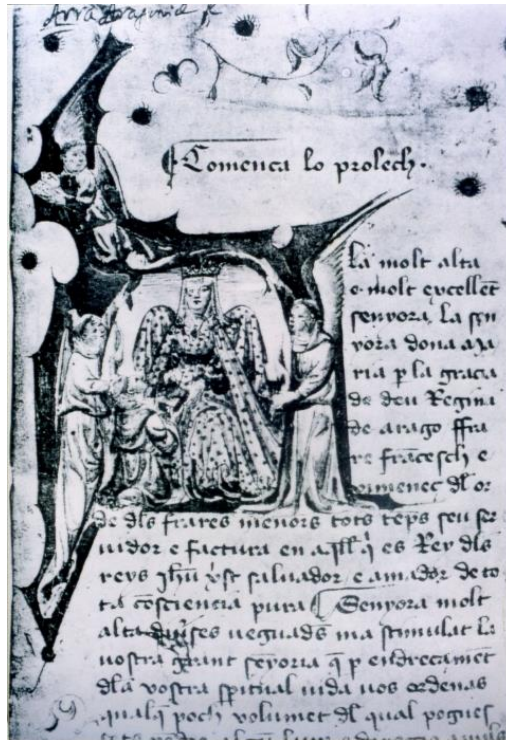 Comença lo prolech.
la molt alta
e molt excellēt
senyora, la sen
yora dona ma
ria p la gracia
de deu Regina
de arago ffra
re frācesch e
ximenec dl or
de dls frares menors tots tēps seu ser
uidor e factura en aqll q es Rey dls
reys ihū xst saluador e amador de to
ta cōsciencia pura Senyora molt
alta diuses ueguads ma stimulat la
vostra grant senyoria q p endreçamēt
dla vostra spitual uida uos ordenas
qualq poch volumet dl qual pogues